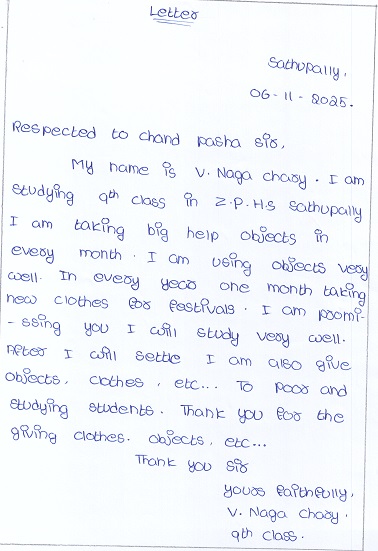 Letter
Sathupally,
06-11-2025.
Respected to chand pasha sir,
My name is V. Naga chary. I am
studying 9th class in Z.P.H.S sathupally
I am taking big help objects in
every month. I am using objects very
well. In every year one month taking
new clothes for festivals. I am promi-
-ssing you I will study very well.
After I will settle I am also give
objects, clothes, etc... To poor and
studying students. Thank you for the
giving clothes. objects, etc...
Thank you sir
yours faithfully,
V. Naga chary.
9th class.